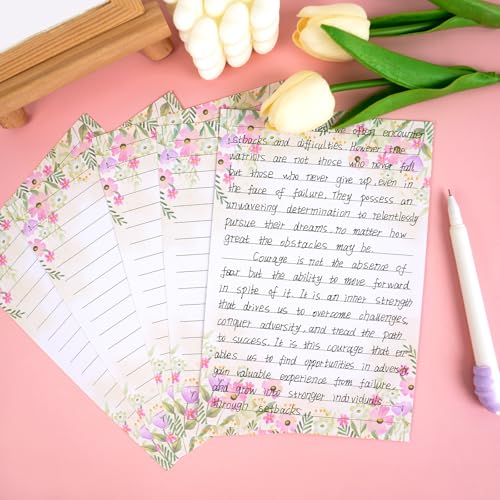 we often encounter
setbacks and difficulties. However, true
warriors are not those who never fall
but those who never give up, even in
the face of failure. They possess an
unwavering determination to relentlessly
pursue their dreams, no matter how
great the obstacles may be.
Courage is not the absence of
fear but the ability to move forward
in spite of it. It is an inner strength
that drives us to overcome challenges,
conquer adversity, and tread the path
to success. It is this courage that en-
ables us to find opportunities in adversity,
gain valuable experience from failure,
and grow into stronger individuals
through setbacks.